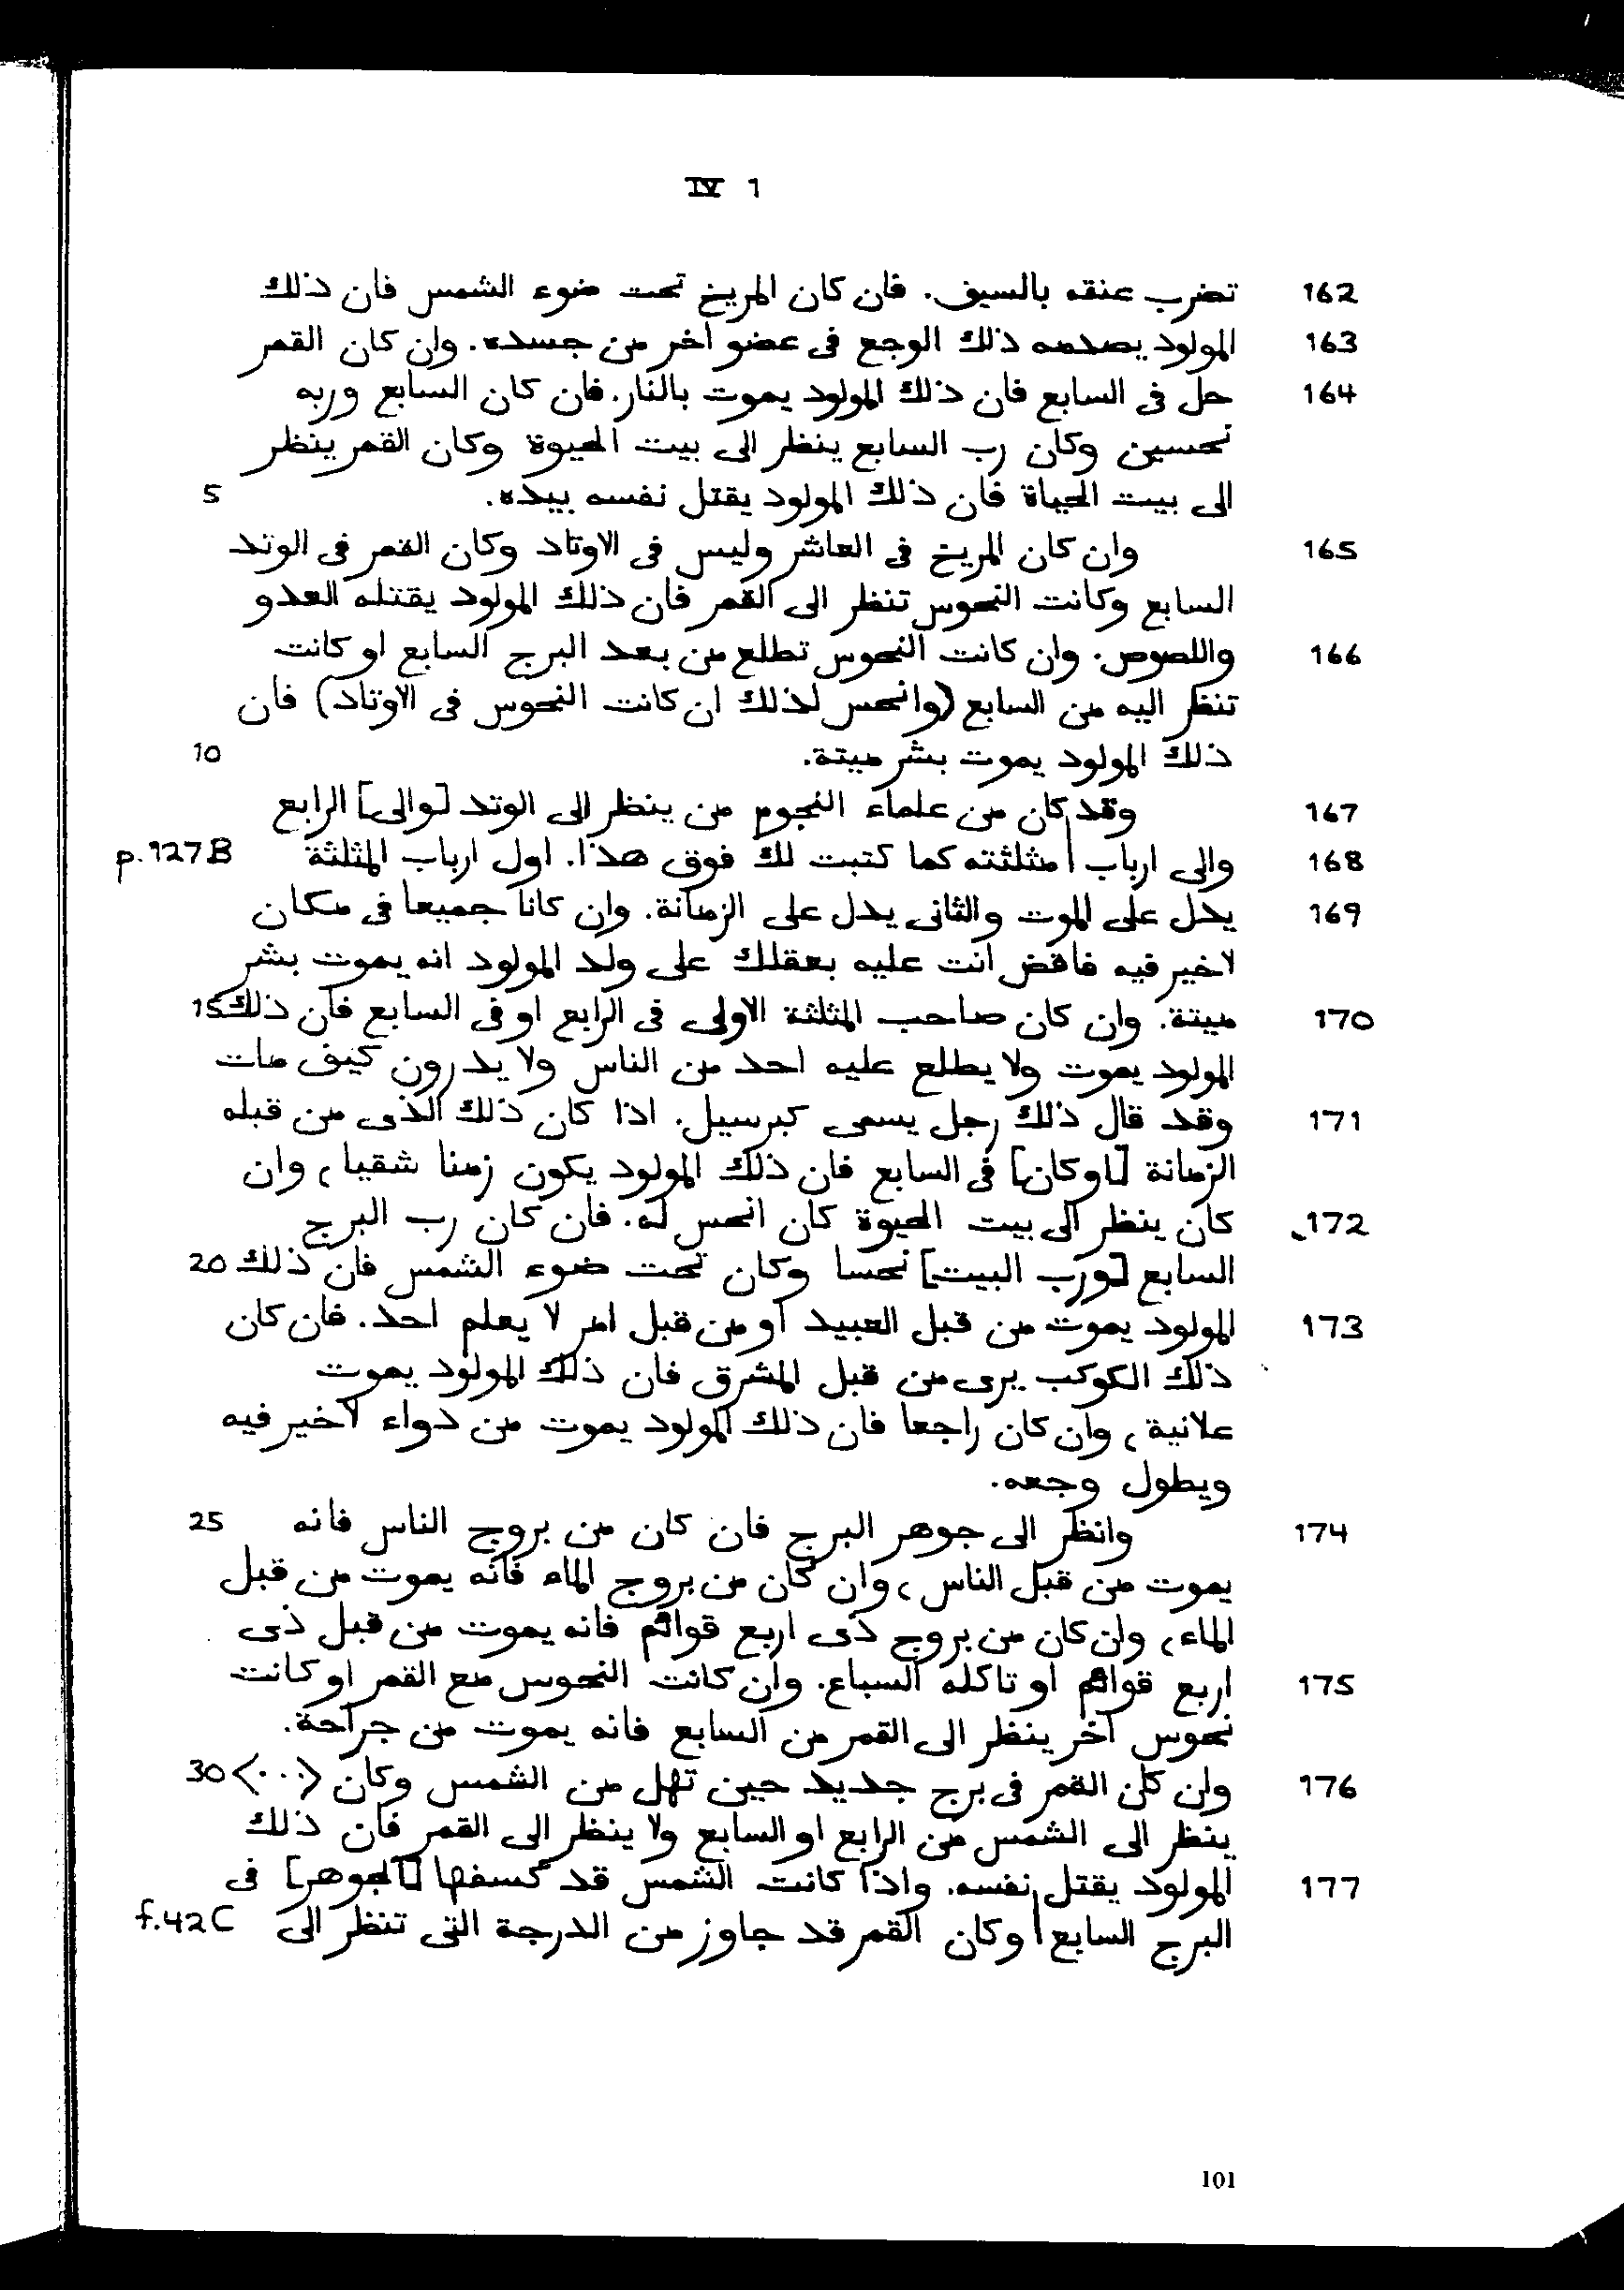 IV 1
162 تضرب عنقه بالسيف. فان كان المريخ تحت ضوء الشمس فان ذلك
163 المولود يصدمه ذلك الوجع فى عضو اخر من جسده. وان كان القمر
164 حل فى السابع فان ذلك المولود يموت بالنار. فان كان السابع وربه
نحسين وكان رب السابع ينظر الى بيت الحيوة وكان القمر ينظر
الى بيت الحياة فان ذلك المولود يقتل نفسه بيده. 5
165 وان كان المريخ فى العاشر وليس فى الاوتاد وكان القمر فى الوتد
السابع وكانت النحوس تنظر الى القمر فان ذلك المولود يقتله العدو
166 واللصوص. وان كانت النحوس تطلع من بعد البرج السابع او كانت
تنظر اليه من السابع (وانحس لذلك ان كانت النحوس فى الاوتاد) فان
ذلك المولود يموت بشر ميتة. 10
167 وقد كان من علماء النجوم من ينظر الى الوتد [والى] الرابع
168 والى ارباب | مثلثته كما كتبت لك فوق هذا. اول ارباب المثلثة p.127B
169 يدل على الموت والثانى يدل على الزمانة. وان كانا جميعا فى مكان
لا خير فيه فاقض انت عليه بعقلك على ولد المولود انه يموت بشر
170 ميتة. وان كان صاحب المثلثة الاولى فى الرابع او فى السابع فان ذلك 15
المولود يموت ولا يطلع عليه احد من الناس ولا يدرون كيف مات
171 وقد قال ذلك رجل يسمى كبرسيل. اذا كان ذلك الذى من قبله
الزمانة [اوكان] فى السابع فان ذلك المولود يكون زمنا شقيا، وان
172 كان ينظر الى بيت الحيوة كان انحس له. فان كان رب البرج
السابع [ورب البيت] نحسا وكان تحت ضوء الشمس فان ذلك 20
173 المولود يموت من قبل العبيد او من قبل امر لا يعلم احد. فان كان
ذلك الكوكب يرى من قبل المشرق فان ذلك المولود يموت
علانية، وان كان راجعا فان ذلك المولود يموت من دواء لا خير فيه
ويطول وجعه.
174 وانظر الى جوهر البرج فان كان من بروج الناس فانه 25
يموت من قبل الناس، وان كان من بروج الماء فانه يموت من قبل
الماء، وان كان من بروج ذى اربع قوائم فانه يموت من قبل ذى
175 اربع قوائم او تاكله السباع. وان كانت النحوس مع القمر او كانت
نحوس اخر ينظر الى القمر من السابع فانه يموت من جراحة.
176 وان كان القمر فى برج جديد حين تهل من الشمس وكان <...> 30
ينظر الى الشمس من الرابع او السابع ولا ينظر الى القمر فان ذلك
177 المولود يقتل نفسه. واذا كانت الشمس قد كسفها [الجوهر] فى
البرج السابع | وكان القمر قد جاوز من الدرجة التى تنظر الى f.42C
101